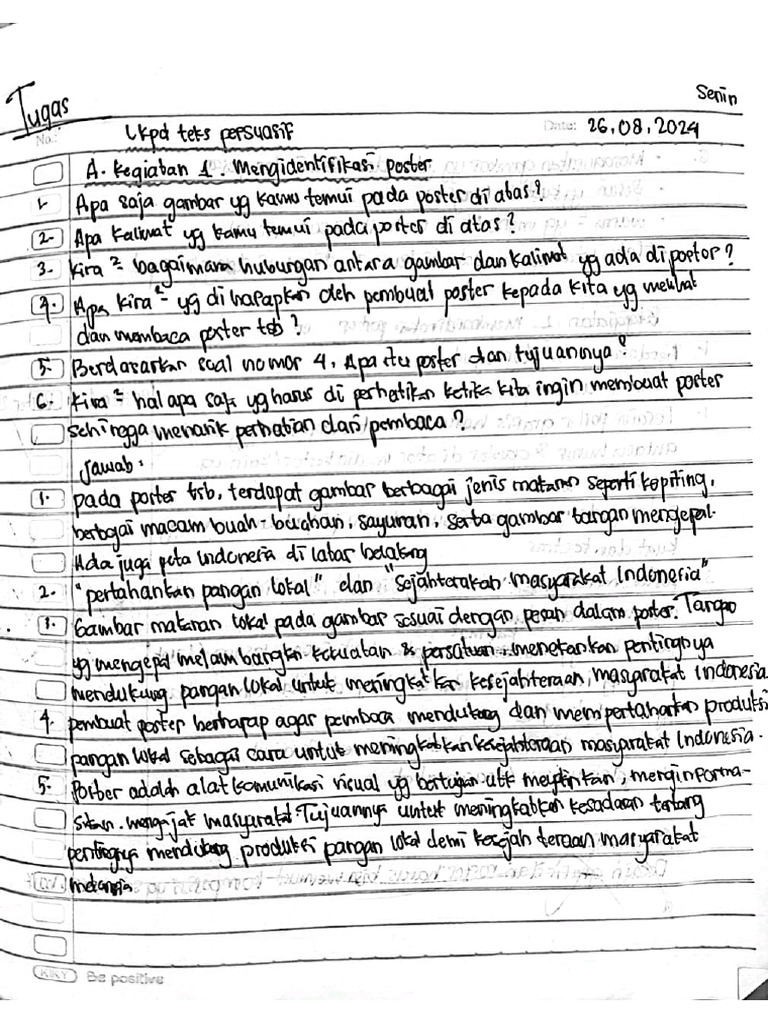 Tugas
Senin
No.:
Lkpd teks persuasif
Date: 26.08.2024
A. Kegiatan 1. Mengidentifikasi poster
1. Apa saja gambar yg kamu temui pada poster di atas?
2. Apa kalimat yg kamu temui pada poster di atas?
3. Kira² bagaimana hubungan antara gambar dan kalimat yg ada di poster?
4. Apa kira² yg di harapkan oleh pembuat poster kepada kita yg melihat
dan membaca poster tsb?
5. Berdasarkan soal nomor 4, Apa itu poster dan tujuannya?
6. Kira² hal apa saja yg harus di perhatikan ketika kita ingin membuat poster
sehingga menarik perhatian dari pembaca?
Jawab:
1. pada poster tsb, terdapat gambar berbagai jenis makanan seperti kepiting,
berbagai macam buah-buahan, sayuran, serta gambar tangan mengepal.
Ada juga peta indonesia di latar belakang
2. "pertahankan pangan lokal" dan "Sejahterakan masyarakat Indonesia"
3. Gambar makanan lokal pada gambar sesuai dengan pesan dalam poster. Tangan
yg mengepal melambangkan kekuatan & persatuan, menekankan pentingnya
mendukung pangan lokal untuk meningkatkan kesejahteraan, masyarakat indonesia
4. pembuat poster berharap agar pembaca mendukung dan mempertahankan produksi
pangan lokal sebagai cara untuk meningkatkan kesejahteraan masyarakat Indonesia.
5. Poster adalah alat komunikasi visual yg bertujuan utk meyakinkan, menginforma-
sikan, mengajak masyarakat. Tujuannya untuk meningkatkan kesadaran tentang
pentingnya mendukung produksi pangan lokal demi kesejahteraan masyarakat
KIKY Be positive